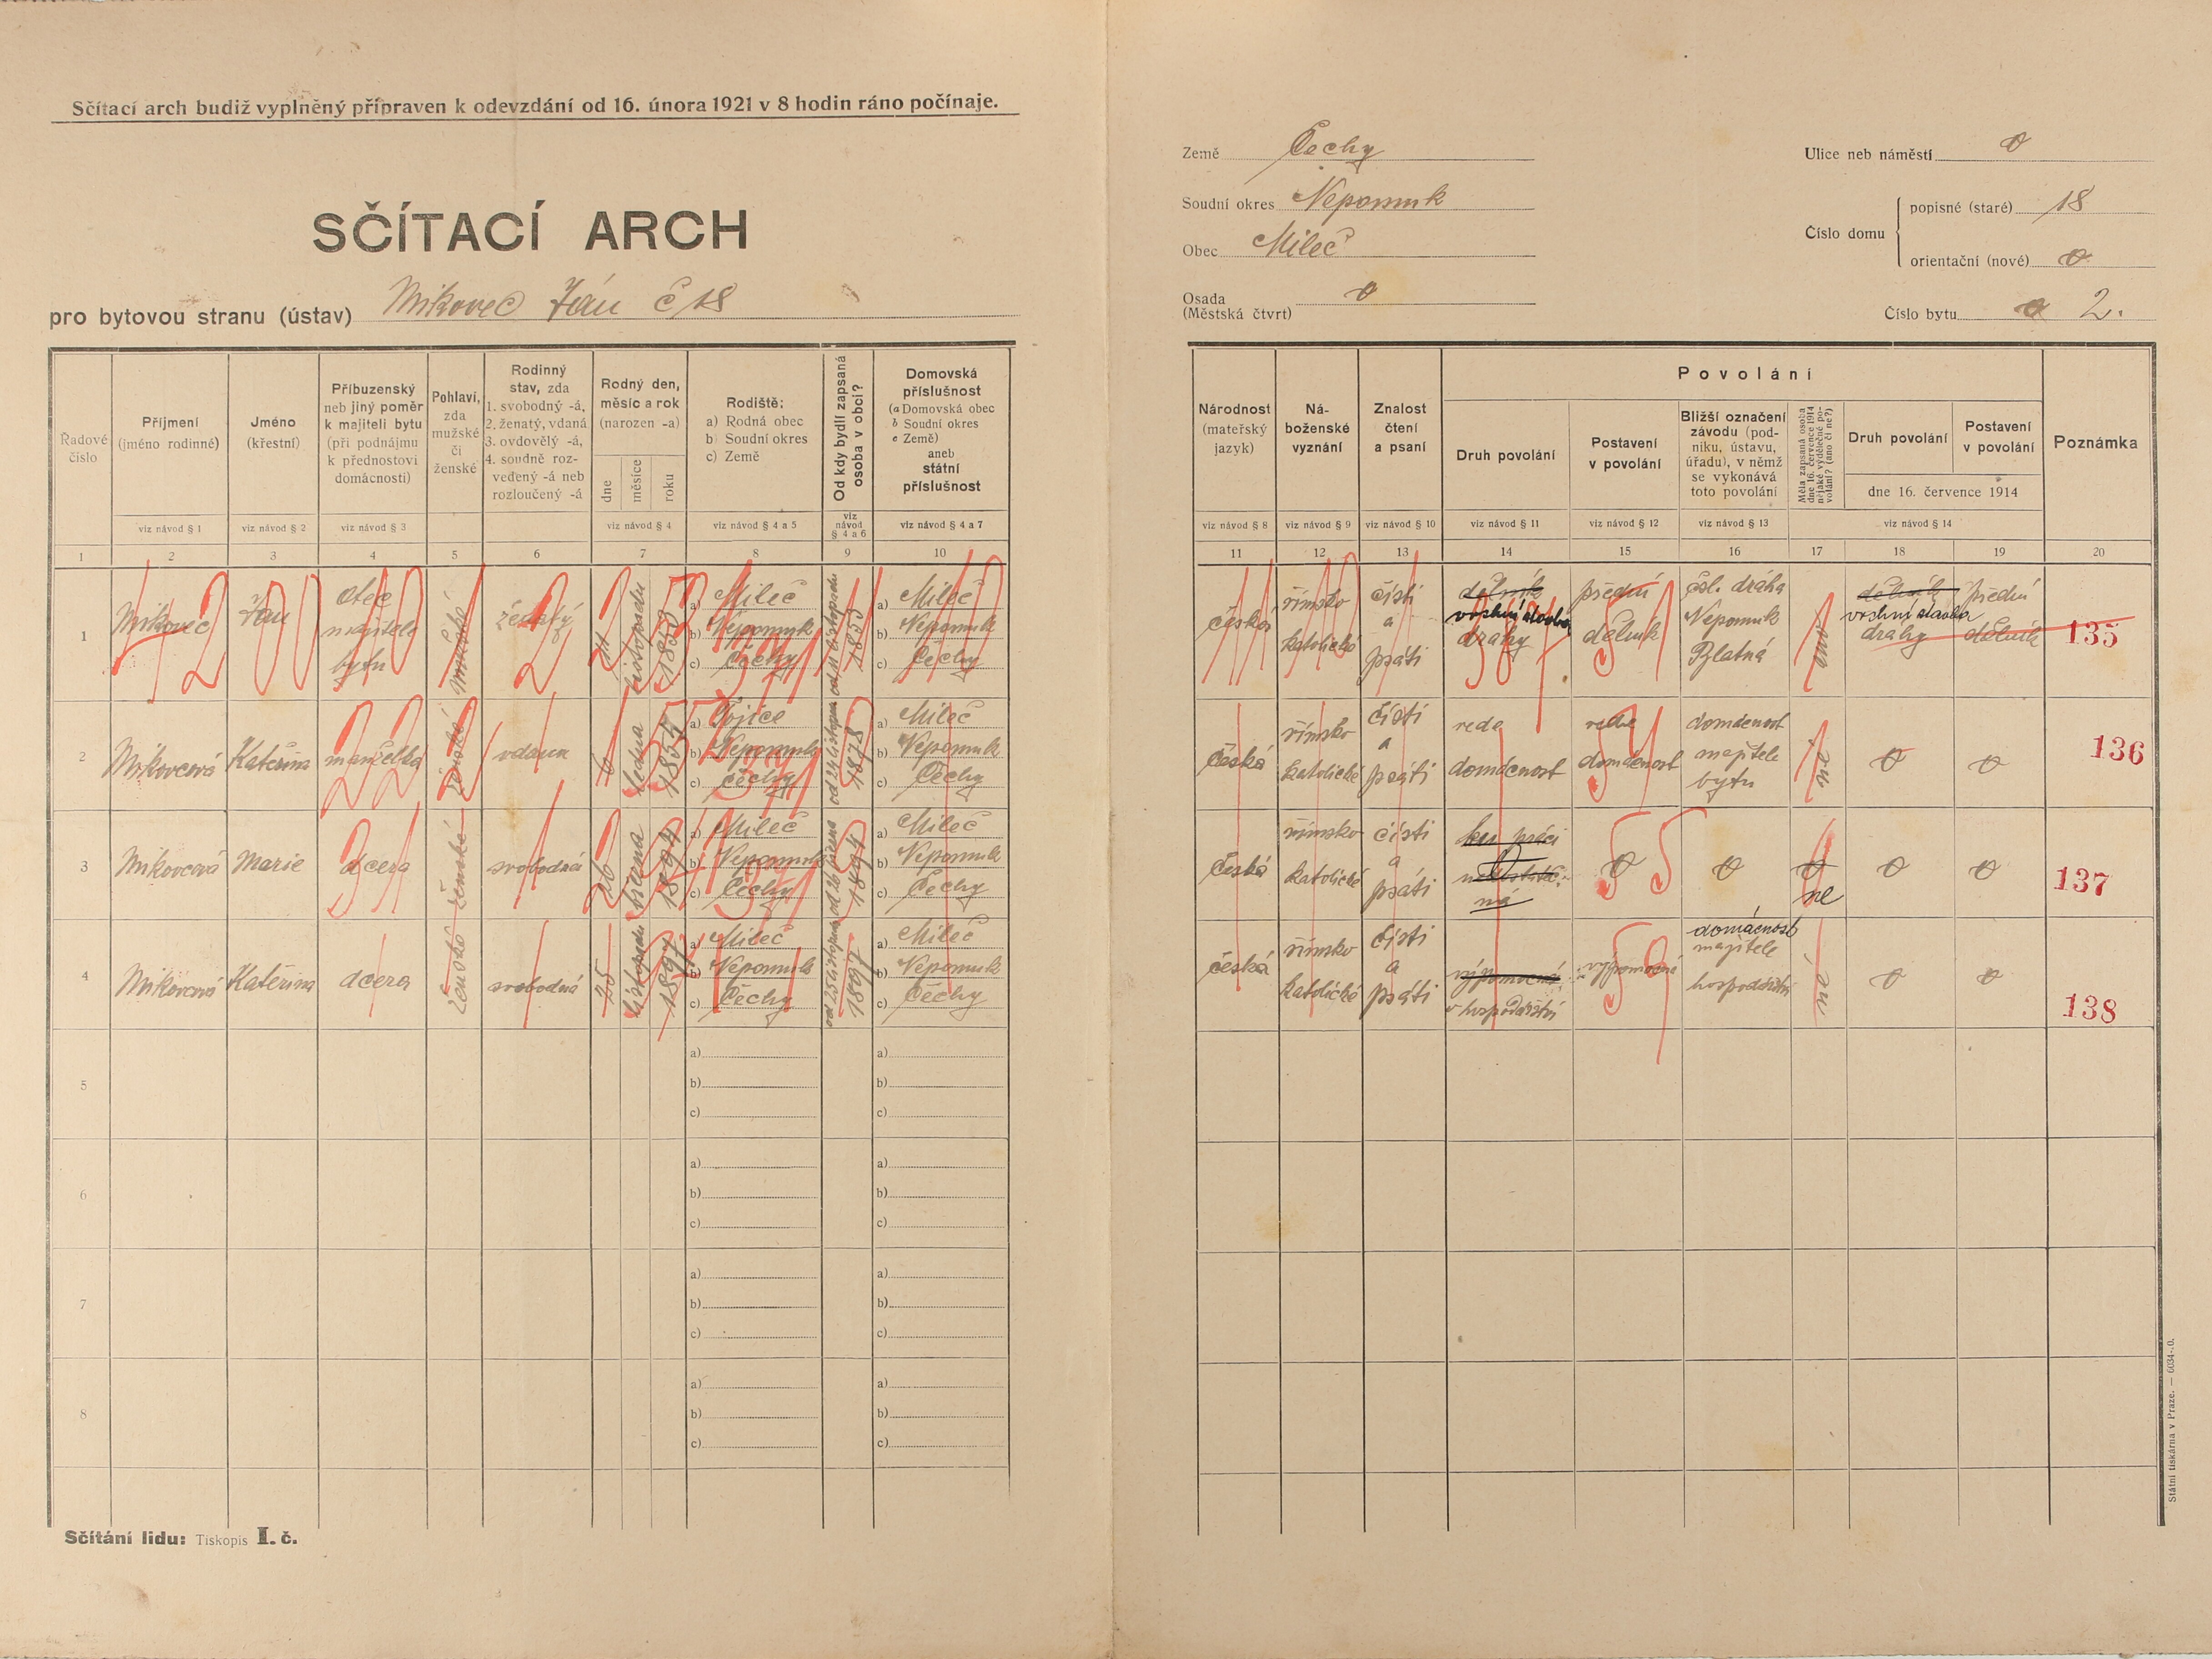 Sčítací arch budiž vyplněný připraven k odevzdání od 16. února 1921 v 8 hodin ráno počínaje.
SČÍTACÍ ARCH
pro bytovou stranu (ústav) Mikovec Ján č 18
Země Čechy
Soudní okres Nepomuk
Obec Mileč
Osada
(Městská čtvrt) 0
Ulice neb náměstí 0
Číslo domu
popisné (staré) 18
orientační (nové) 0
Číslo bytu 2.
Řadové
číslo
Příjmení
(jméno rodinné)
viz návod § 1
Jméno
(křestní)
viz návod § 2
Příbuzenský
neb jiný poměr
k majiteli bytu
(při podnájmu
k přednostovi
domácnosti)
viz návod § 3
Pohlaví,
zda
mužské
či
ženské
Rodinný
stav, zda
1. svobodný -á,
2. ženatý, vdaná
3. ovdovělý -á,
4. soudně roz-
vedený -á neb
rozloučený -á
Rodný den,
měsíc a rok
(narozen -a)
dne
měsíce
roku
viz návod § 4
Rodiště:
a) Rodná obec
b) Soudní okres
c) Země
viz návod § 4 a 5
Od kdy bydlí zapsaná
osoba v obci?
viz
návod
§ 4 a 6
Domovská
příslušnost
(a Domovská obec
b Soudní okres
c Země)
aneb
státní
příslušnost
viz návod § 4 a 7
Národnost
(mateřský
jazyk)
viz návod § 8
Ná-
boženské
vyznání
viz návod § 9
Znalost
čtení
a psaní
viz návod § 10
Povolání
Druh povolání
viz návod § 11
Postavení
v povolání
viz návod § 12
Bližší označení
závodu (pod-
niku, ústavu,
úřadu), v němž
se vykonává
toto povolání
viz návod § 13
Měla zapsaná osoba
dne 16. července 1914
nějaké výdělečné po-
volání? (ano či ne?)
Druh povolání
Postavení
v povolání
dne 16. července 1914
viz návod § 14
Poznámka
1 2 3 4 5 6 7 8 9 10 11 12 13 14 15 16 17 18 19 20
1
Mikovec
Ján
Otec
majitele
bytu
mužské
ženatý
11
listopadu
1853
a) Mileč
b) Nepomuk
c) Čechy
od 11 listopadu
1853
a) Mileč
b) Nepomuk
c) Čechy
česká
římsko
katolické
čísti
a
psáti
dělník
vrchní stavba
dráhy
přední
dělník
čsl. dráha
Nepomuk
Blatná
ano
dělník
vrchní stavba
dráhy
přední
dělník
135
2
Mikovcová
Kateřina
manželka
ženské
vdaná
6
ledna
a) Tojice
b) Nepomuk
c) Čechy
od 24 listopadu
1878
a) Mileč
b) Nepomuk
c) Čechy
Česká
římsko
katolické
čísti
a
psáti
vede
domácnost
vede
domácnost
domácnost
majitele
bytu
ne
0
0
136
3
Mikovcová
Marie
dcera
ženské
svobodná
26
března
1894
a) Mileč
b) Nepomuk
c) Čechy
od 26 března
1894
a) Mileč
b) Nepomuk
c) Čechy
Česká
římsko
katolické
čísti
a
psáti
ku práci
0
0
0
ne
0
0
137
4
Mikovcová
Kateřina
dcera
ženské
svobodná
25
listopadu
1897
a) Mileč
b) Nepomuk
c) Čechy
od 25 listopadu
1897
a) Mileč
b) Nepomuk
c) Čechy
česká
římsko
katolické
čísti
a
psáti
výpomocná
v hospodářství
výpomocná
domácnost
majitele
hospodářství
ne
0
0
138
5
a)
b)
c)
a)
b)
c)
6
a)
b)
c)
a)
b)
c)
7
a)
b)
c)
a)
b)
c)
8
a)
b)
c)
a)
b)
c)
Sčítání lidu: Tiskopis I. č.
Státní tiskárna v Praze. — 6034-0.